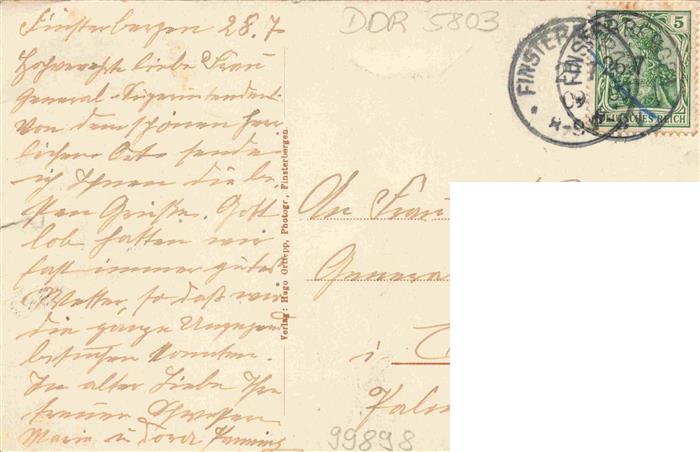 DDR 5803
Finsterbergen 28.7
Hochverehrte liebe Frau
General-Superintendent
Von dem schönen herr
lichen Ort sende
ich Ihnen die be
sten Grüße. Gott
lob hatten wir
fast immer gutes
Wetter, so daß wir
die ganze Umgegend
besuchen konnten.
In alter Liebe Ihre
treuen Schwestern
Marie u Dora
Verlag: Hugo Ortlepp, Photogr., Finsterbergen.
5
DEUTSCHES REICH
FINSTERBERGEN
26.7
09
8-9
An Frau
Genera
i.
99898